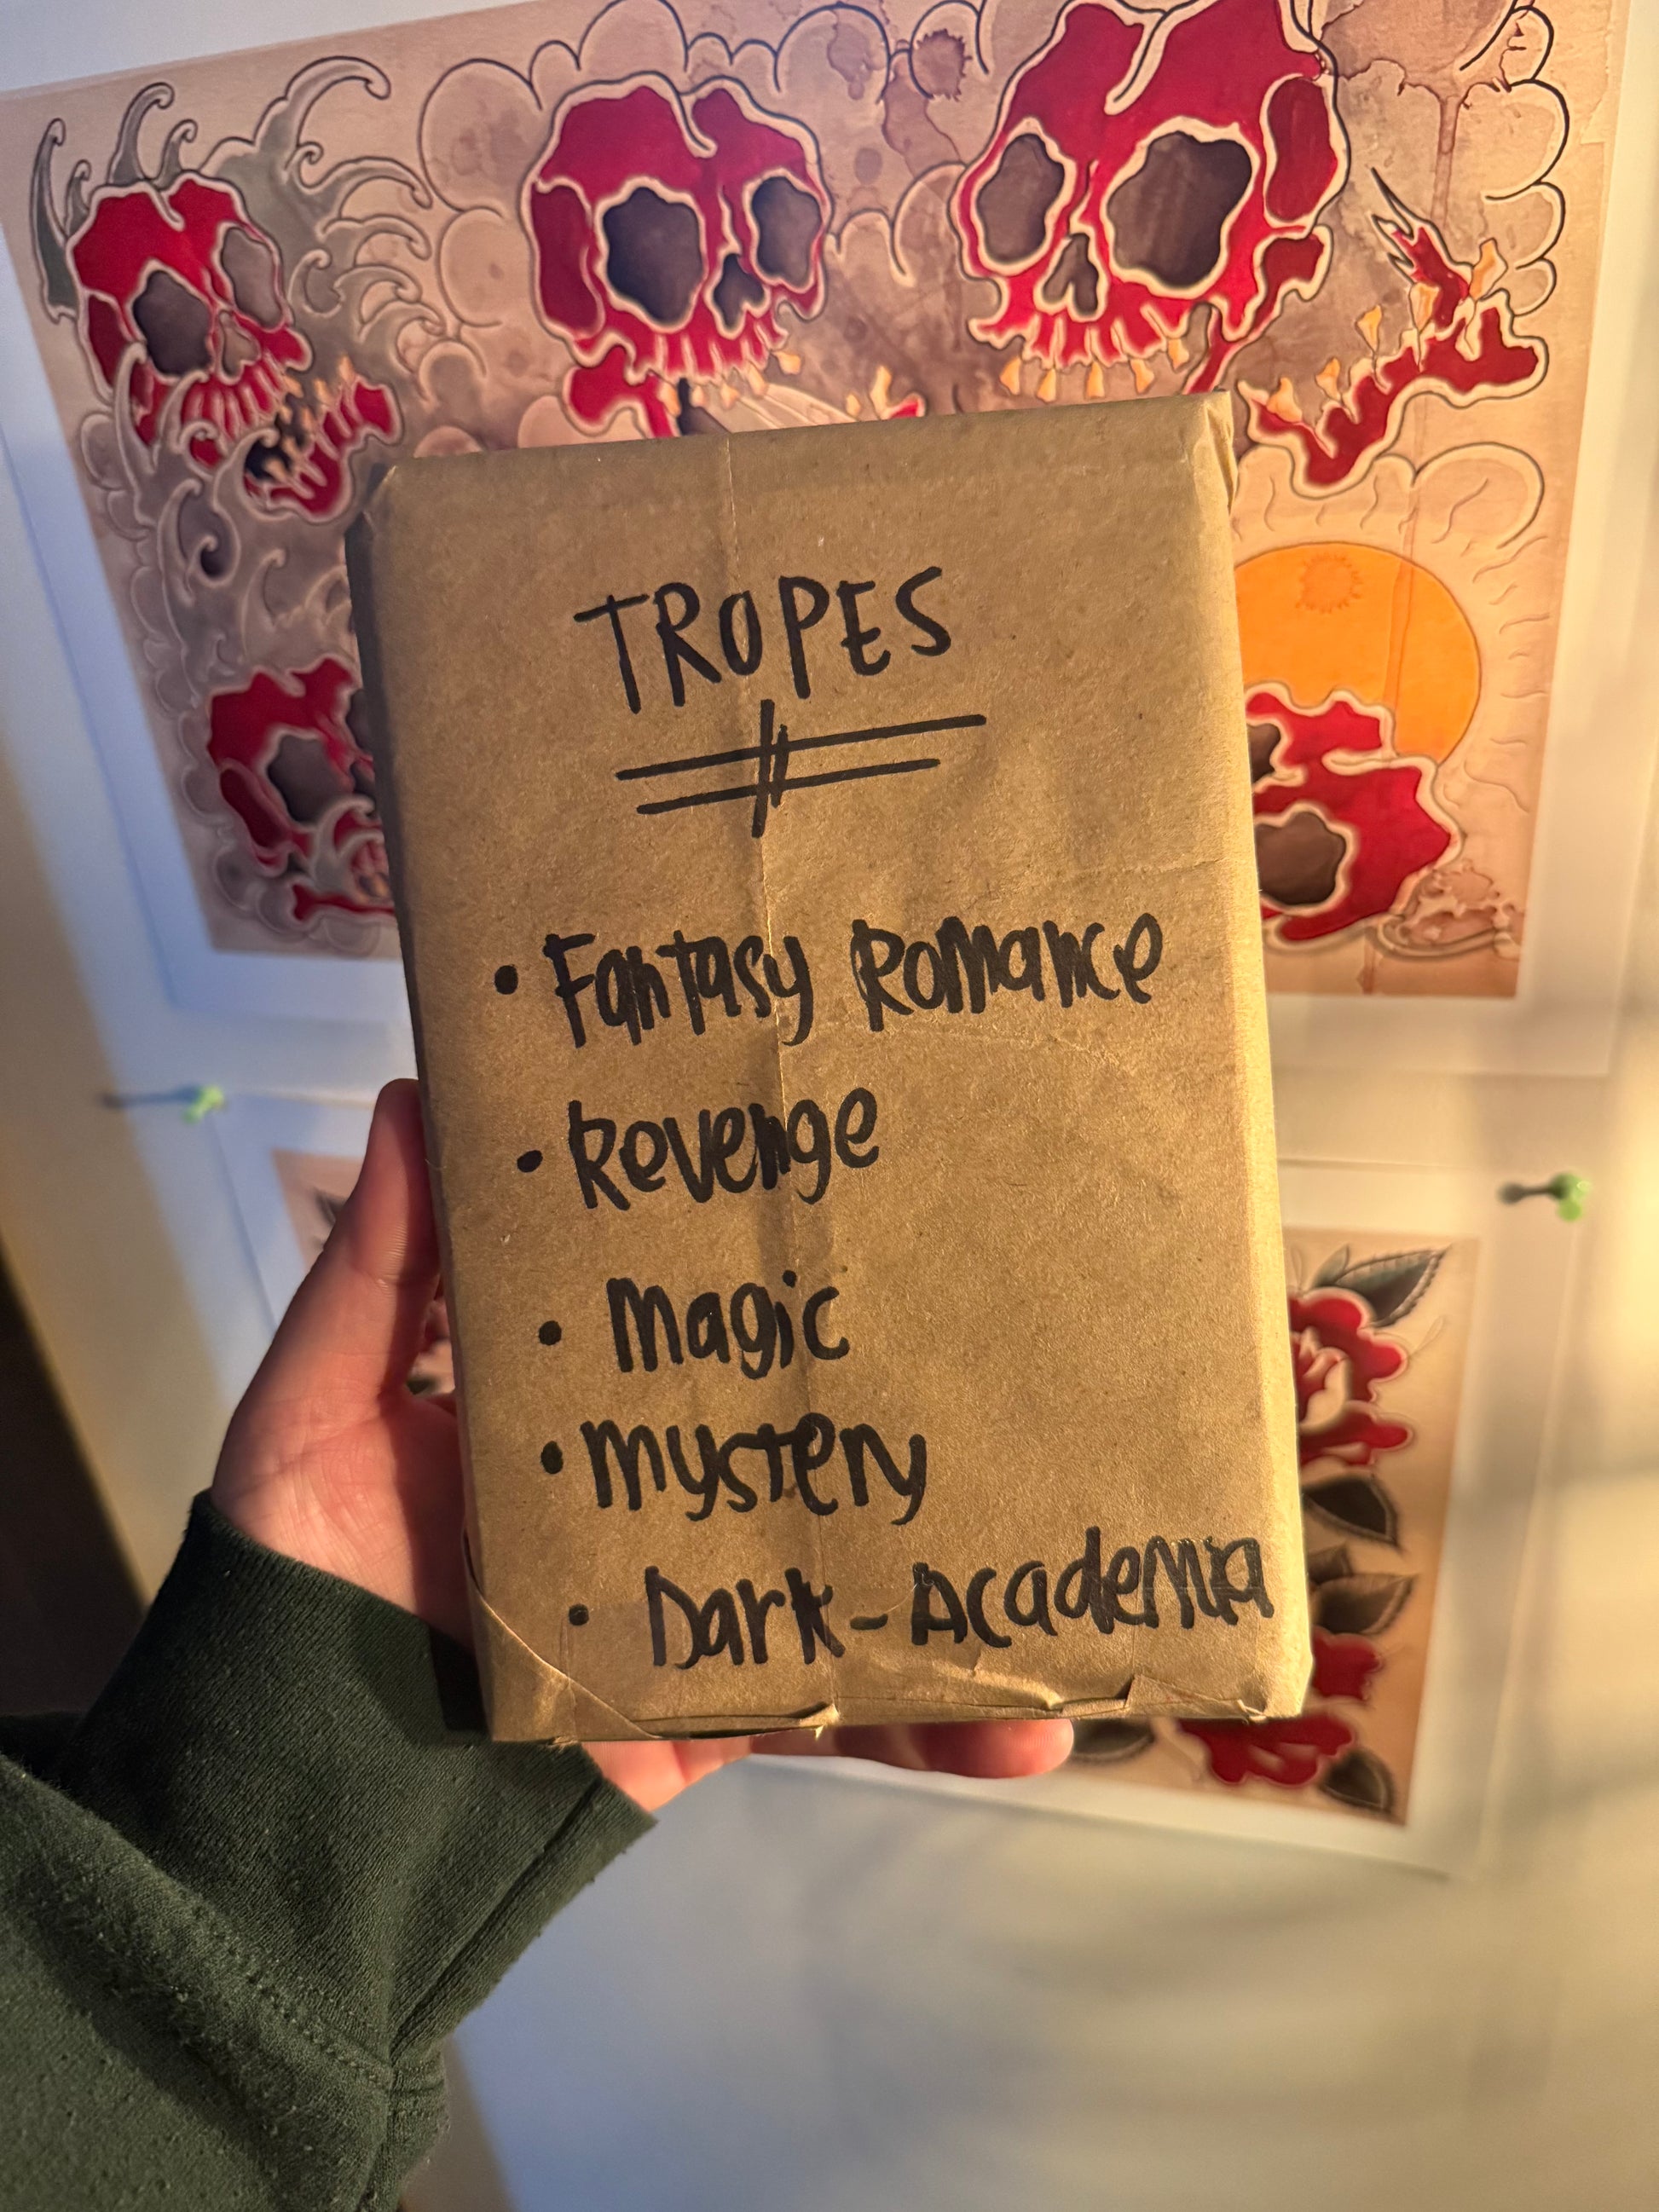 TROPES
• Fantasy Romance
• Revenge
• Magic
• Mystery
• Dark-Academia